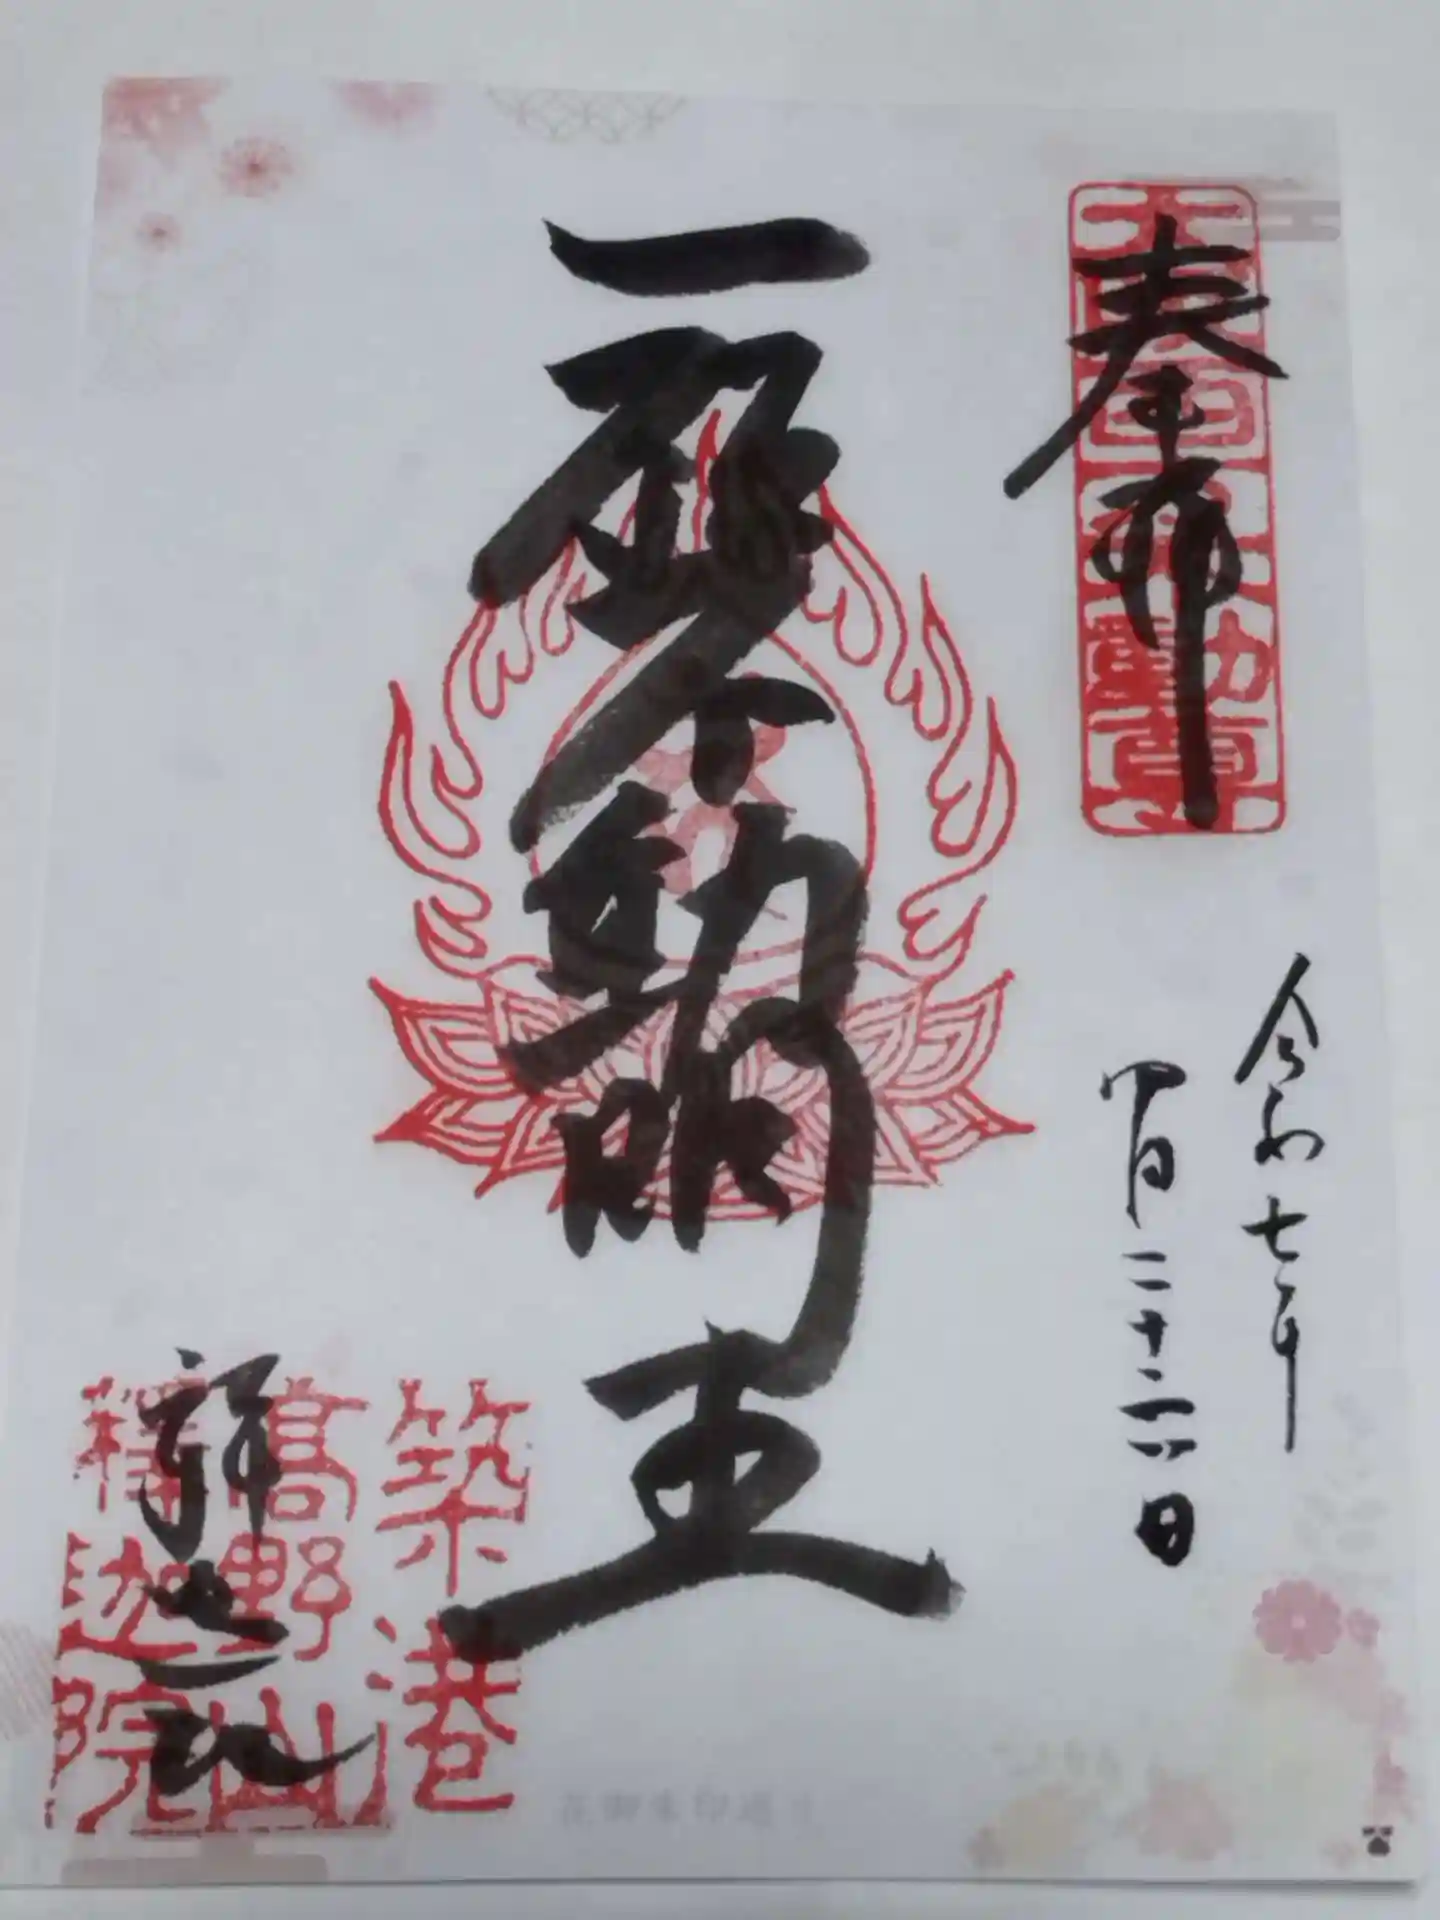 奉拝
令和七年
四月二十六日
一願不動明王
築港
高野山
釋迦院
釈迦院